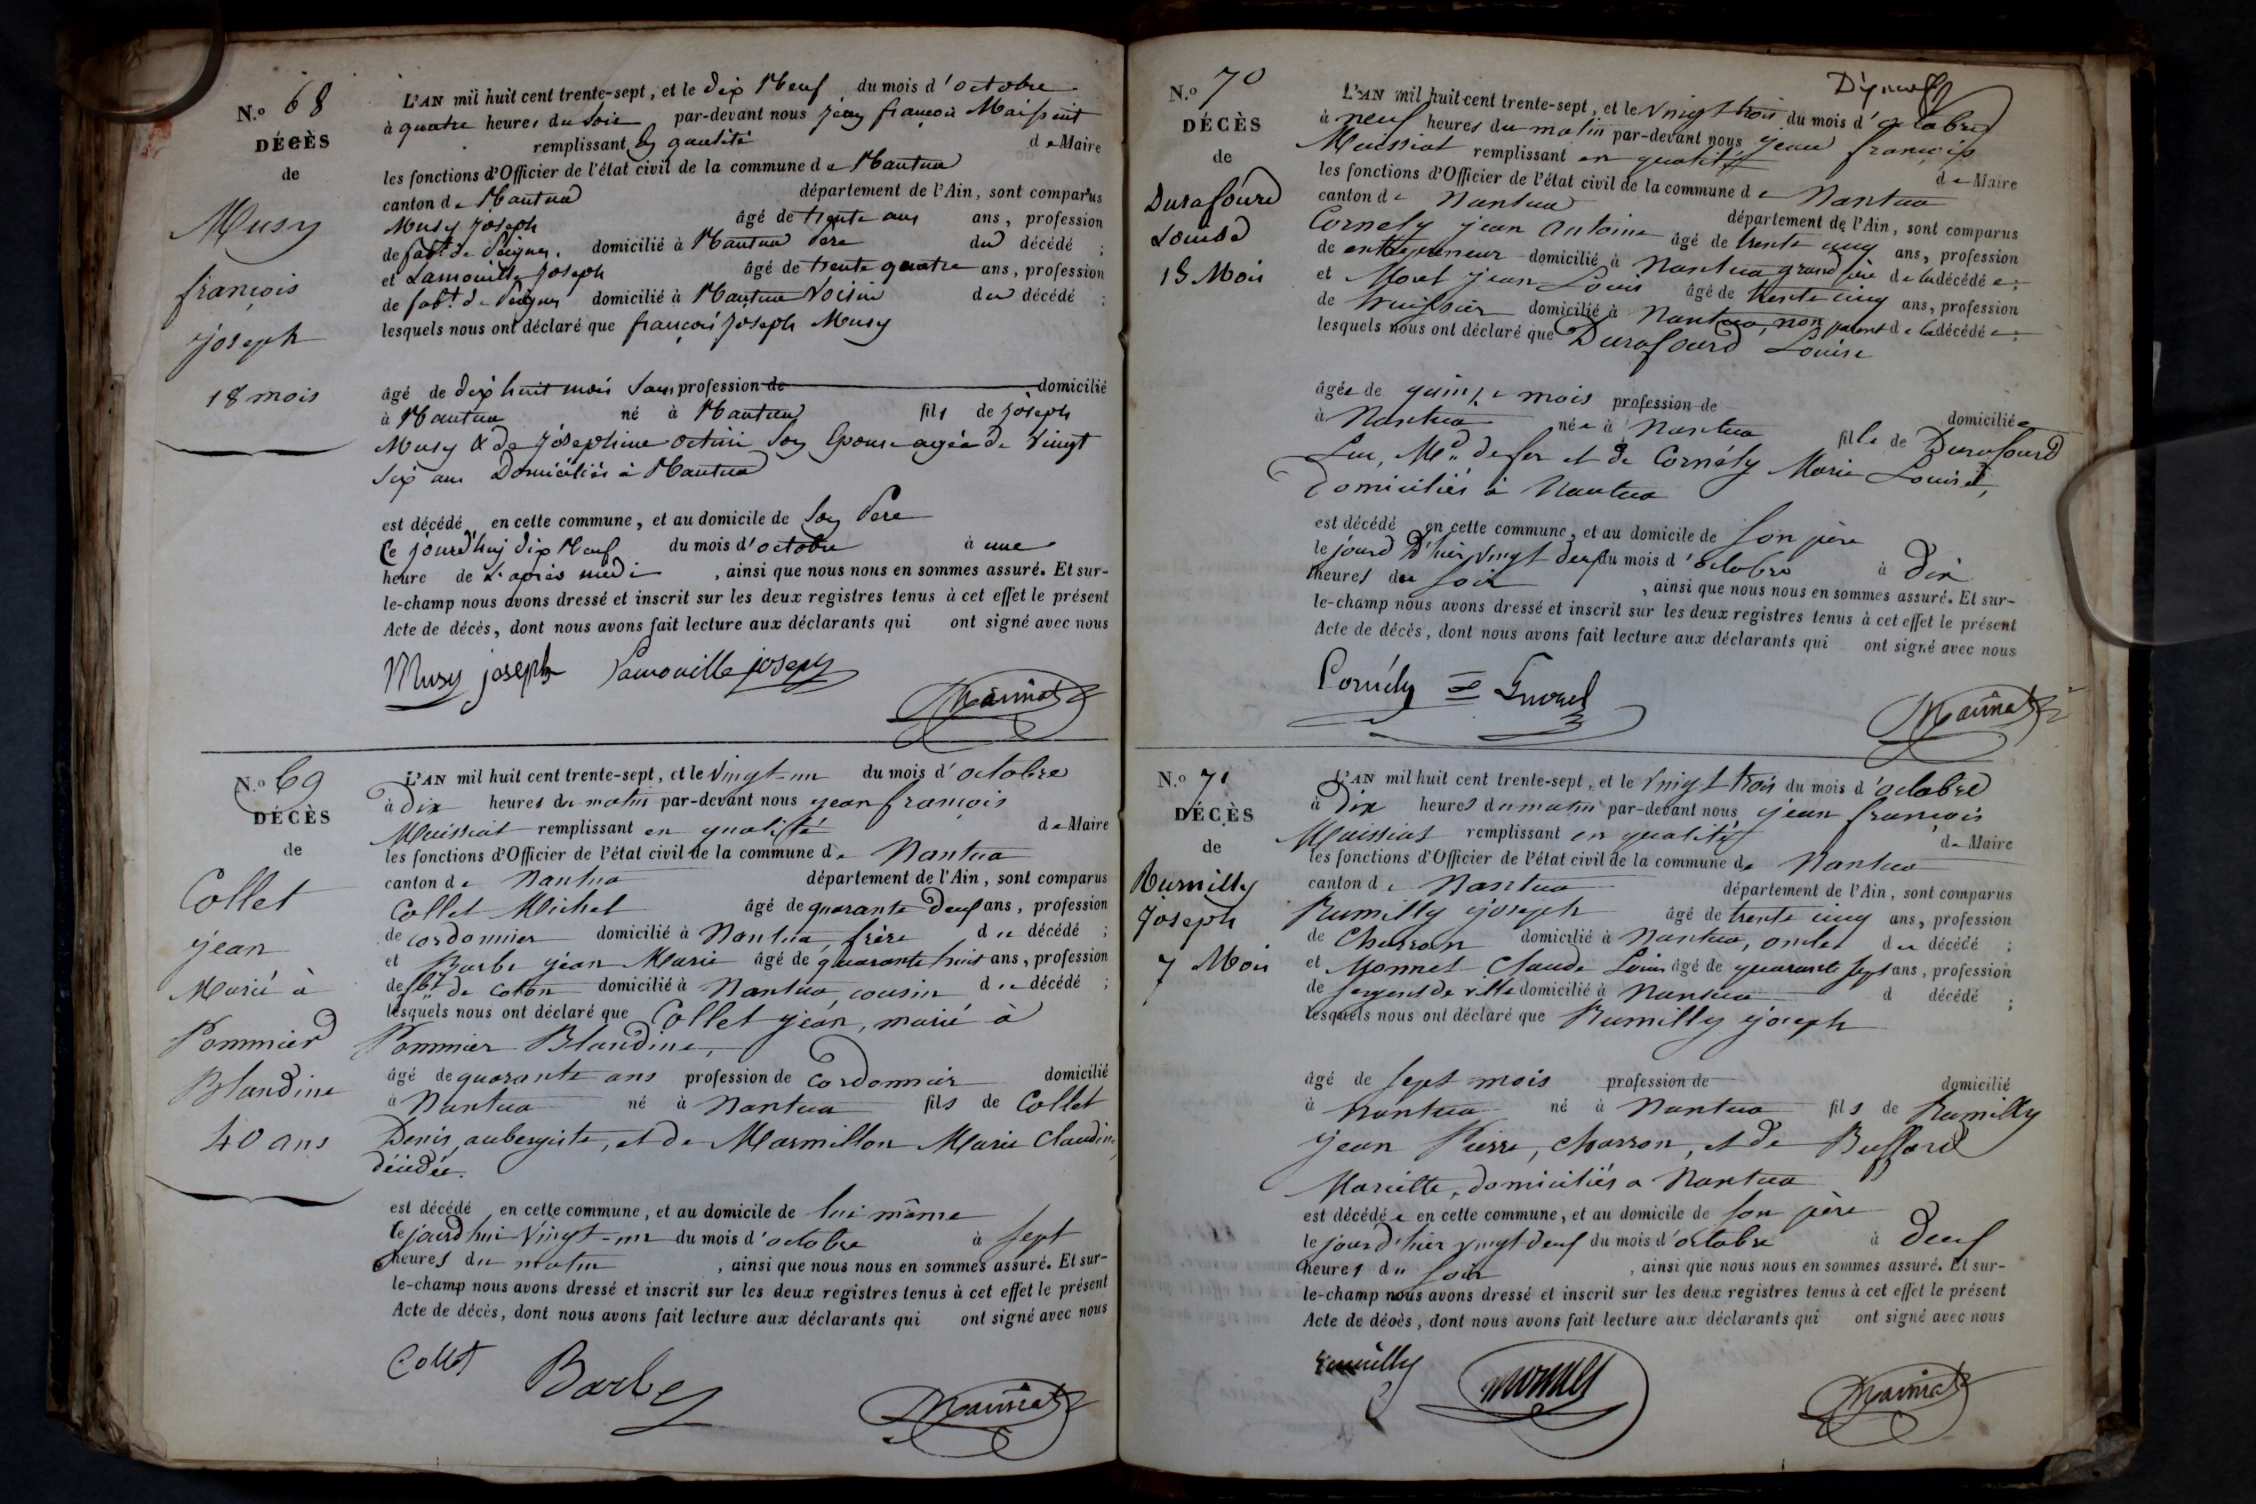 N.o 68
DÉCÈS
de
Musy
françois
joseph
18 mois
L'AN mil huit cent trente-sept, et le dix Neuf du mois d'octobre
à quatre heures du soir par-devant nous jean françois Maissiat
remplissant en qualité de Maire
les fonctions d'Officier de l'état civil de la commune de Nantua
canton de Nantua département de l'Ain, sont comparus
Musy joseph âgé de trente ans ans, profession
de fabt de Peignes. domicilié à Nantua Père du décédé ;
et Lamouille Joseph âgé de trente quatre ans, profession
de fabt de Peignes domicilié à Nantua Voisin du décédé ;
lesquels nous ont déclaré que françois Joseph Musy
âgé de dix huit mois Sans profession de domicilié
à Nantua né à Nantua fils de joseph
Musy & de Joséphine Son Epouse agée de Vingt
Six ans Domiciliés à Nantua
est décédé en cette commune, et au domicile de Son Père
Ce jourd'huy dix Neuf du mois d'octobre à une
heure de L'après midi , ainsi que nous nous en sommes assuré. Et sur-
le-champ nous avons dressé et inscrit sur les deux registres tenus à cet effet le présent
Acte de décès, dont nous avons fait lecture aux déclarants qui ont signé avec nous
Musy joseph Lamouille joseph
Maissiat
N.o 69
DÉCÈS
de
Collet
jean
Marié à
Pommier
Blandine
40 ans
L'AN mil huit cent trente-sept, et le Vingt-un du mois d'octobre
à dix heures du matin par-devant nous jean françois
Maissiat remplissant en qualité de Maire
les fonctions d'Officier de l'état civil de la commune de Nantua
canton de Nantua département de l'Ain, sont comparus
Collet Michel âgé de quarante deux ans, profession
de cordonnier domicilié à Nantua, frère du décédé ;
et Barbe jean Marie âgé de quarante huit ans, profession
de fbt de coton domicilié à Nantua, cousin du décédé ;
lesquels nous ont déclaré que Collet jean, marié à
Pommier Blandine,
âgé de quarante ans profession de Cordonnier domicilié
à Nantua né à Nantua fils de Collet
Denis, aubergiste, et de Marmillon Marie Claudine,
décédée.
est décédé en cette commune, et au domicile de lui même
le jourd'hui Vingt-un du mois d'octobre à sept
heures du matin , ainsi que nous nous en sommes assuré. Et sur-
le-champ nous avons dressé et inscrit sur les deux registres tenus à cet effet le présent
Acte de décès, dont nous avons fait lecture aux déclarants qui ont signé avec nous
Collet Barbe
Maissiat
N.o 70
DÉCÈS
de
Durafourd
Louise
15 Mois
L'AN mil huit cent trente-sept, et le Vingt trois du mois d'octobre
à neuf heures du matin par-devant nous jean françois
Maissiat remplissant en qualité de Maire
les fonctions d'Officier de l'état civil de la commune de Nantua
canton de Nantua département de l'Ain, sont comparus
Cornely jean Antoine âgé de trente cinq ans, profession
de entrepreneur domicilié à Nantua grand père de la décédée ;
et Jean Louis âgé de trente cinq ans, profession
de huissier domicilié à Nantua, non parent de la décédée ;
lesquels nous ont déclaré que Durafourd Louise
âgée de quinze mois profession de domiciliée
à Nantua née à Nantua fille de Durafourd
Luc, Md. de fer et de Cornély Marie Louise,
Domiciliés à Nantua
est décédé en cette commune, et au domicile de son père
le jourd d'hier vingt deux du mois d'octobre à dix
heures du soir , ainsi que nous nous en sommes assuré. Et sur-
le-champ nous avons dressé et inscrit sur les deux registres tenus à cet effet le présent
Acte de décès, dont nous avons fait lecture aux déclarants qui ont signé avec nous
Cornély
Maissiat
N.o 71
DÉCÈS
de
Rumilly
Joseph
7 Mois
L'AN mil huit cent trente-sept, et le Vingt trois du mois d'octobre
à Dix heures du matin par-devant nous, jean françois
Maissiat remplissant en qualité de Maire
les fonctions d'Officier de l'état civil de la commune de Nantua
canton de Nantua département de l'Ain, sont comparus
Rumilly joseph âgé de trente cinq ans, profession
de Charron domicilié à Nantua, oncle du décédé ;
et Monnet Claude Louis âgé de quarante sept ans, profession
de sergent de ville domicilié à Nantua d décédé ;
lesquels nous ont déclaré que Rumilly joseph
âgé de sept mois profession de domicilié
à Nantua né à Nantua fils de Rumilly
jean Pierre, charron, et de Buffard
Mariette, domiciliés a Nantua
est décédé en cette commune, et au domicile de son père
le jourd'hier vingt-deux du mois d'octobre à deux
heures du soir , ainsi que nous nous en sommes assuré. Et sur-
le-champ nous avons dressé et inscrit sur les deux registres tenus à cet effet le présent
Acte de décès, dont nous avons fait lecture aux déclarants qui ont signé avec nous
Rumilly Monnet
Maissiat